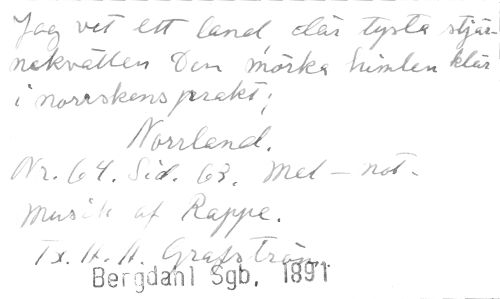 Jag vet ett land, där tysta stjär-
nekvällen Den mörka himlen klär
i norrskensprakt;
Norrland.
Nr. 64. Sid. 63. Mel-not.
Musik af Rappe.
Tx. A. A. Grafström
Bergdahl Sgb. 1891